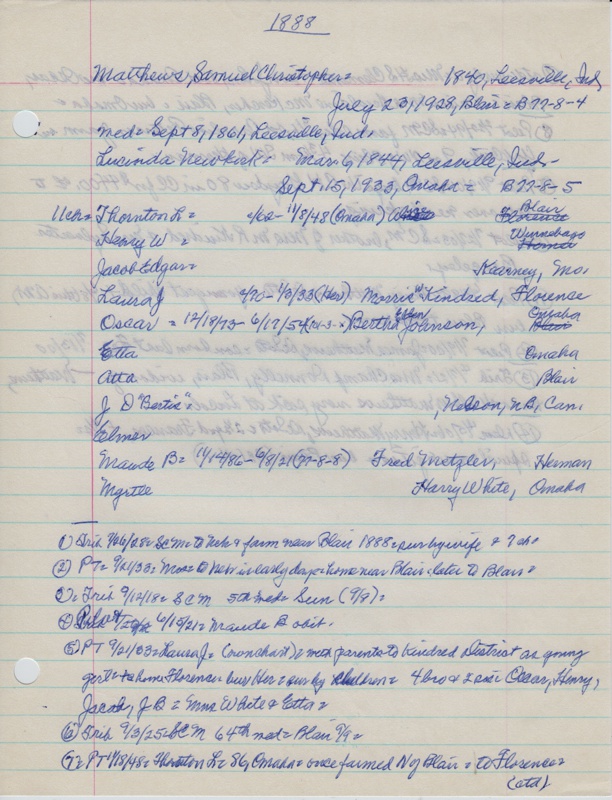 1888
Matthews, Samuel Christopher = 1840, Leesville, Ind.
July 23, 1928, Blair = B77-8-4
med = Sept 8, 1861, Leesville, Ind.
Lucinda Newkirk = Mar. 6, 1844, Leesville, Ind.
Sept. 15, 1933, Omaha = B77-8-5
11ch = Thornton L = 11/8/48 (Omaha) Blair Florence
Henry W = Winnebago Homer
Jacob Edgar = Kearney, Mo.
Laura J 2/70 - 1/8/33 (Her) Morris "Kindred, Florence
Oscar = 12/18/73 - 6/17/54 Bertha Ellen Johnson, Omaha Blair
Etta Omaha
Atta Blair
J D "Bertis" = , Nelson, N.B, Can.
Elmer
Maude B = 11/14/86 - 6/8/21 (77-8-8) Fred Metzler, Herman
Myrtle Harry White, Omaha
① Trib 7/26/28 = SCM = to Neb & farm near Blair 1888 = sur by wife & 7 ch
② PT = 9/21/33 = Mos = to Nebr in early days = home near Blair, later to Blair =
3 = Trib 9/12/18 = SCM 57th med = Sun (9/8) =
④ Pilot 6/15/21 = Maude B obit.
⑤ PT 9/21/33 = Laura J = = with parents to Kindred District as young
girl = to home Florence = bur Her = sur by children = 4 bro & 2 sis = Oscar, Henry,
Jacob, J B = Mrs White & Etta =
⑥ Trib 9/3/25 = SCM 64th med = Blair 9/9 =
⑦ = PT 11/18/48 = Thornton L = 86, Omaha = once farmed N of Blair = to Florence =
(ctd)